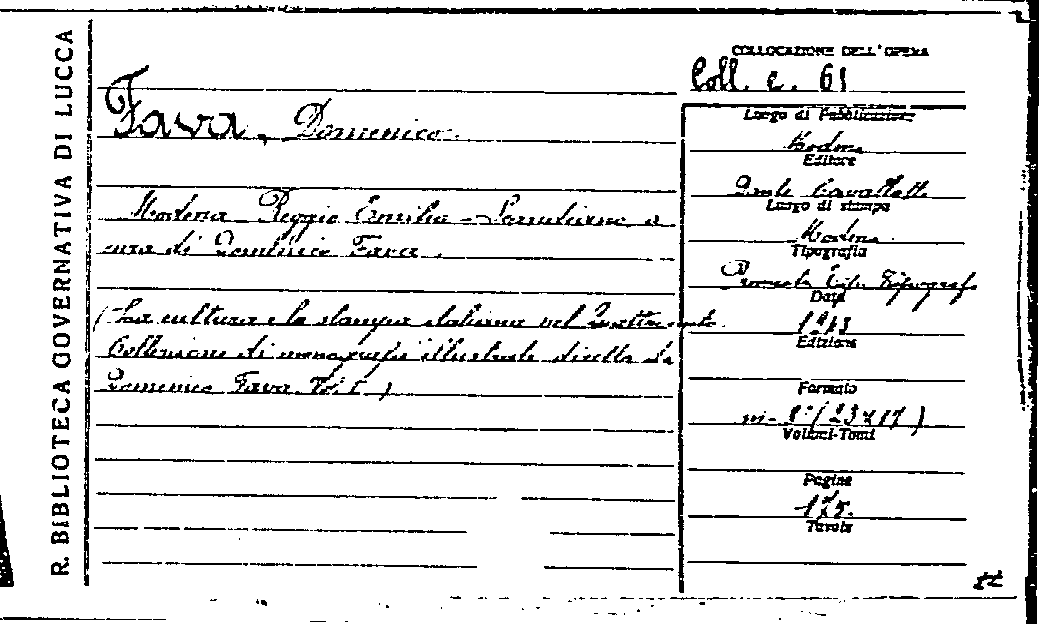 R. BIBLIOTECA GOVERNATIVA DI LUCCA
COLLOCAZIONE DELL'OPERA
Coll. c. 61
Fava, Domenico.
Modena - Reggio Emilia - Scandiano a
cura di Domenico Fava.
(La cultura e la stampa italiana nel Quattrocento.
Collezione di monografie illustrate diretta da
Domenico Fava. Vol. I.)
Luogo di Pubblicazione
Modena
Editore
Dante Cavallotti
Luogo di stampa
Modena
Tipografia
Tipograf.
Data
1943
Edizione
Formato
in-8° (23x17)
Volumi-Tomi
Pagine
175.
Tavole